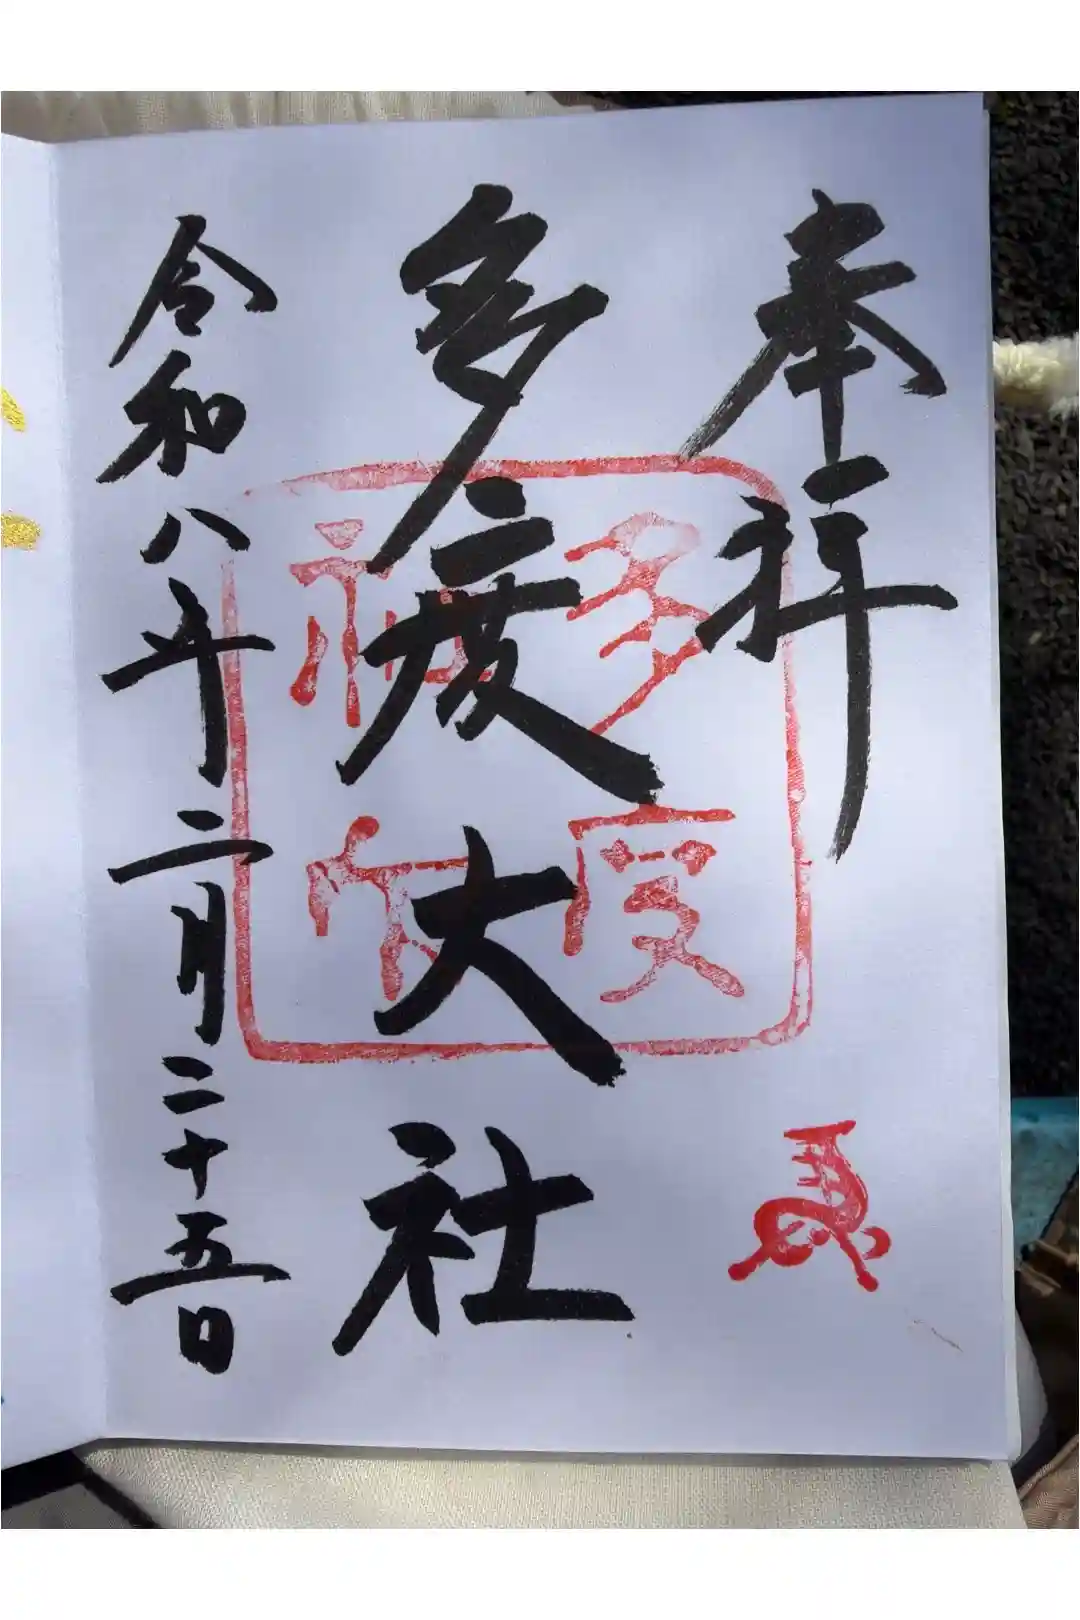 奉拝
多度大社
令和八年二月二十五日
多度
神社